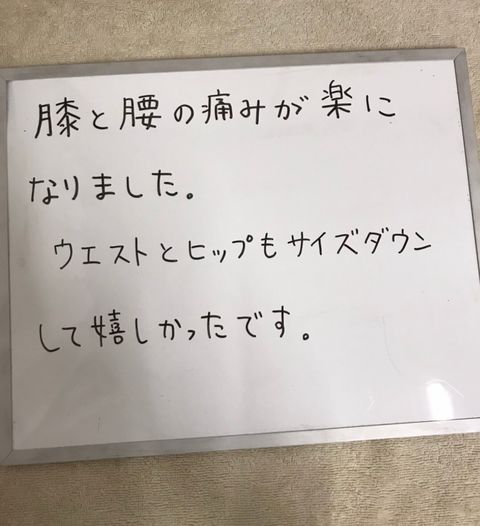 膝と腰の痛みが楽に
なりました。
ウエストとヒップもサイズダウン
して嬉しかったです。